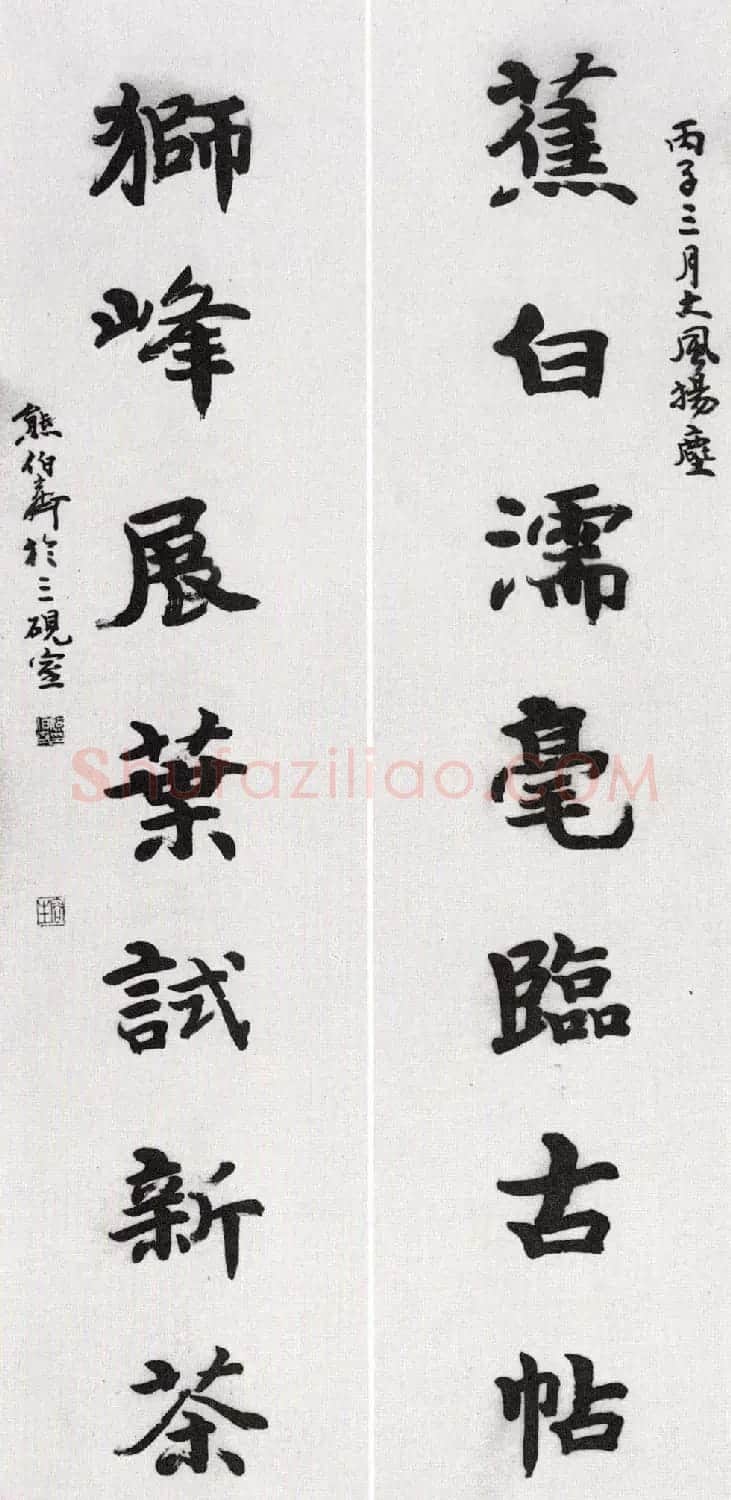 丙子三月大風揚塵
蕉白濡毫臨古帖
獅峰展葉試新茶
熊伯齊於三硯室
Shufaziliao.COM